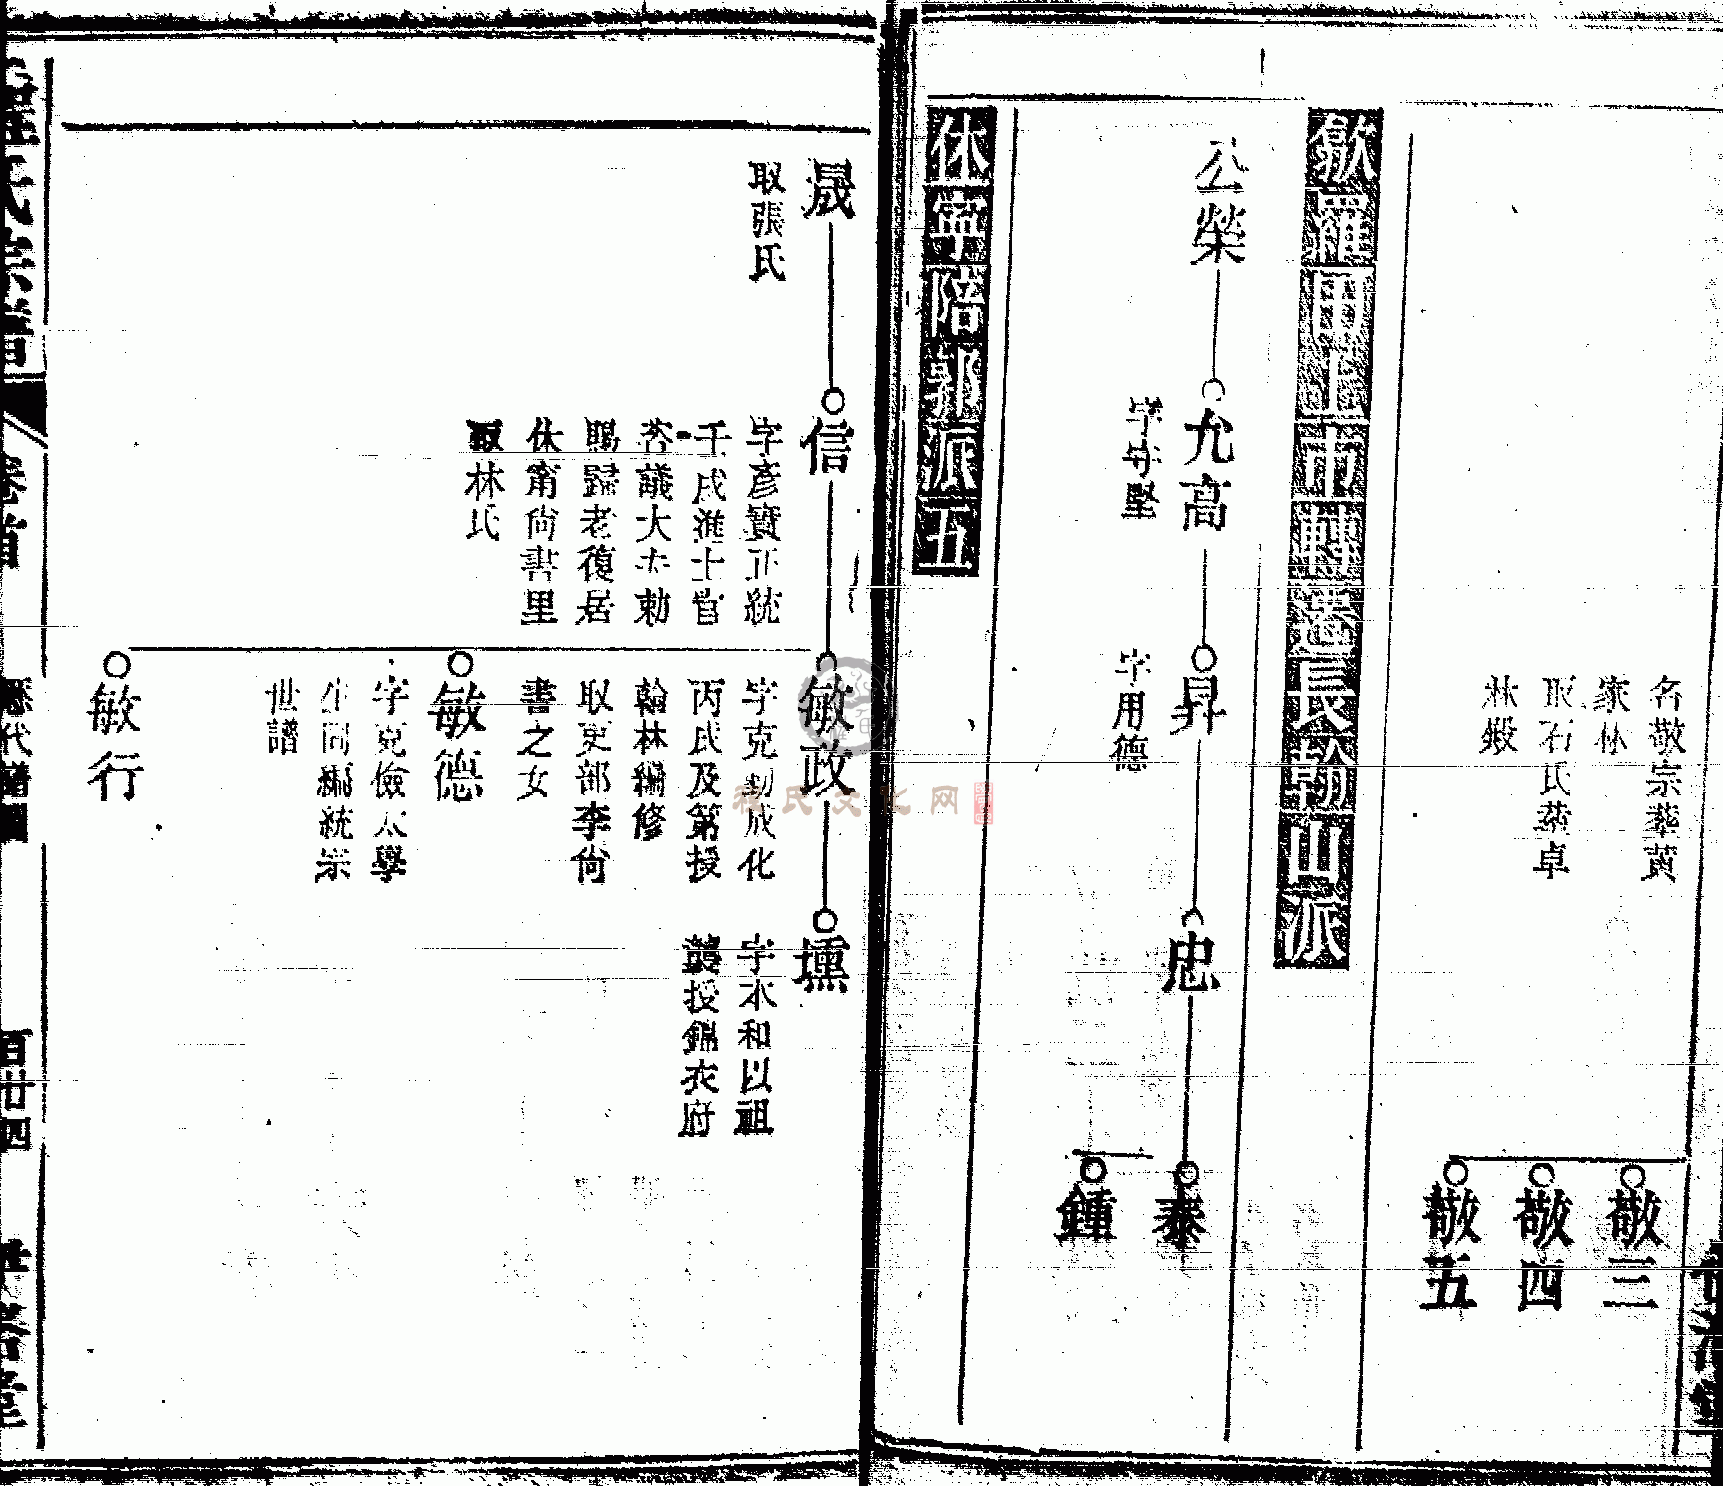 名敬宗葬黃
家林
取石氏葬卓
林塅
敬三
敬四
敬五
歙羅田上市轉遷長翰山派
公榮
允高
字守堅
昇
字用德
忠
泰
鍾
休寧陪郭派五
晟
取張氏
信
字彥寶正統
壬戌進士官
荅議大夫勅
賜歸老復居
休甯尚書里
取林氏
敏政
字克勤成化
丙戌及第授
翰林編修
取吏部李尚
書之女
敏德
字克儉太學
生同編統宗
世譜
敏行
壎
字本和以祖
蔭授錦衣府
程氏宗譜
卷首
歷代譜圖
百廿四